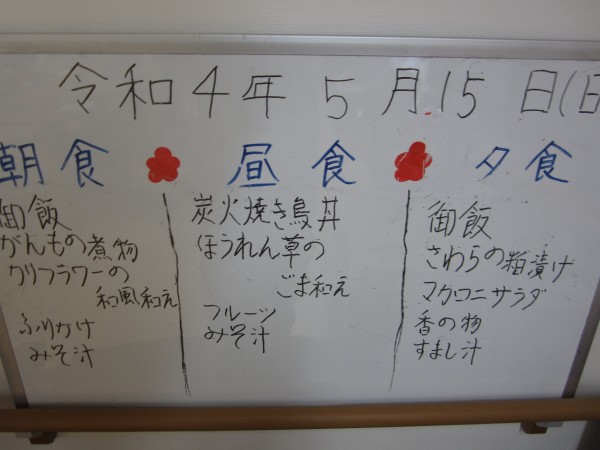 令和4年5月15日(日
朝食
御飯
がんもの煮物
カリフラワーの
和風和え
ふりかけ
みそ汁
昼食
炭火焼き鳥丼
ほうれん草の
ごま和え
フルーツ
みそ汁
夕食
御飯
さわらの粕漬け
マカロニサラダ
香の物
すまし汁